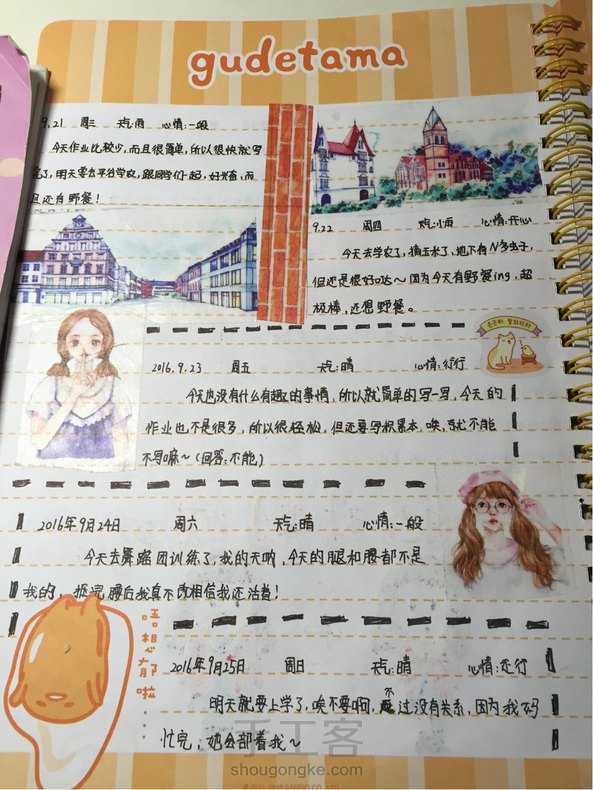 gudetama
9.21 周三 天气:雨 心情:一般
今天作业比较少,而且很简单,所以很快就写
完了,明天要去平谷学农,跟同学们一起,好兴奋,而
且还有野餐!
9.22 周四 天气:小雨 心情:开心
今天去学农了,摘玉米了,地下有N多虫子,
但还是很好哒~因为今天有野餐ing,超
极棒,还想野餐。
2016.9.23 周五 天气:晴 心情:行行
今天也没有什么有趣的事情,所以就简单的写一写,今天的
作业也不是很多,所以很轻松,但还要写积累本,唉,就不能
不写嘛~(回答:不能)
2016年9月24日 周六 天气:晴 心情:一般
今天去舞蹈团训练了,我的天呐,今天的腿和腰都不是
我的,拒完腰后我真不敢相信我还活着!
唔想郁啦...
2016年9月25日 周日 天气:晴 心情:还行
明天就要上学了,唉不要啊,不过没有关系,因为我妈
忙完,她会部着我~
手工客
shougongke.com